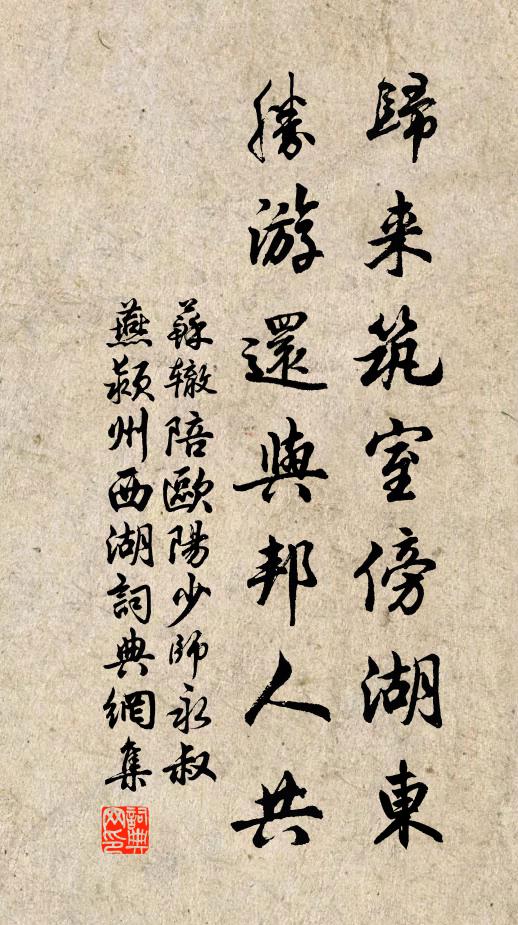 歸来筑室傍湖東
勝游還與邦人共
蘇辙陪歐陽少師永叔
燕颍州西湖詞典網集
詞典网印